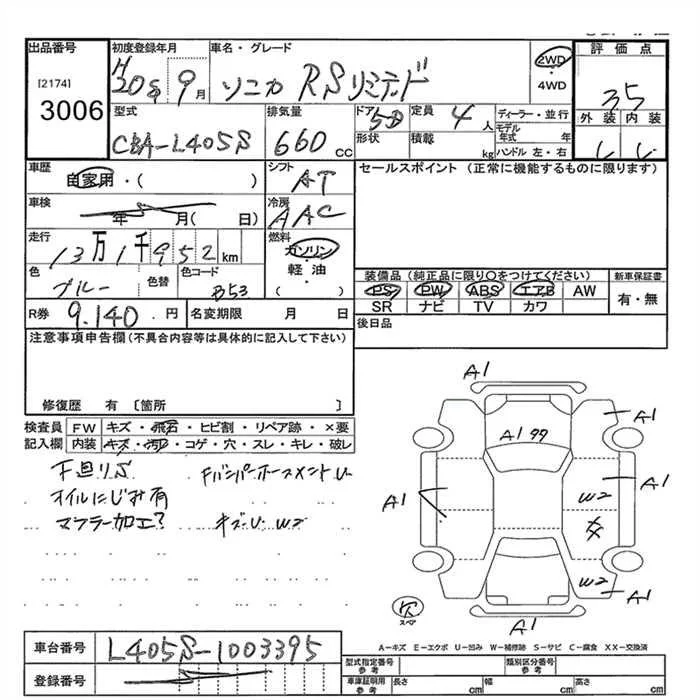 出品番号 初度登録年月 車名・グレード 評価点
[2174] 3006
H20年 9月 ソニカ RSリミテッド 2WD・4WD 3.5
型式 排気量 ドア 定員 ディーラー・並行 外装 内装
CBA-L405S 660cc 5D 4人
形状 積載 kg モデル年式 年 ハンドル 左・右
車歴 自家用・( ) シフト AT セールスポイント (正常に機能するものに限ります)
車検 年 月( 日) 冷房 AAC
走行 13万1千952km 燃料 ガソリン・軽油 ( )
色 ブルー 色替 色コード B53
装備品 (純正品に限り○をつけてください) 新車保証書
PS PW ABS エアB AW 有・無
SR ナビ TV カワ
R券 9.140.円 名変期限 月 日 後日品
注意事項申告欄 (不具合内容等は具体的に記入して下さい)
修復歴 有〔箇所 〕
検査員記入欄 FW キズ・飛石・ヒビ割・リペア跡・×要
内装 キズ・汚れ・コゲ・穴・スレ・キレ・破レ
下廻りS Fバンパーホースメント U
オイルにじみ有
マフラー加工? キズU W2
A1
A1
A1 99
A1 A1
W2
W2 A1
スペア
A1
A-キズ E-エクボ U-凹み W-補修跡 S-サビ C-腐食 XX-交換済
車台番号 L405S-1003395
登録番号
型式指定番号 参考 類別区分番号 参考
車庫証明用 参考 長さ cm 幅 cm 高さ cm